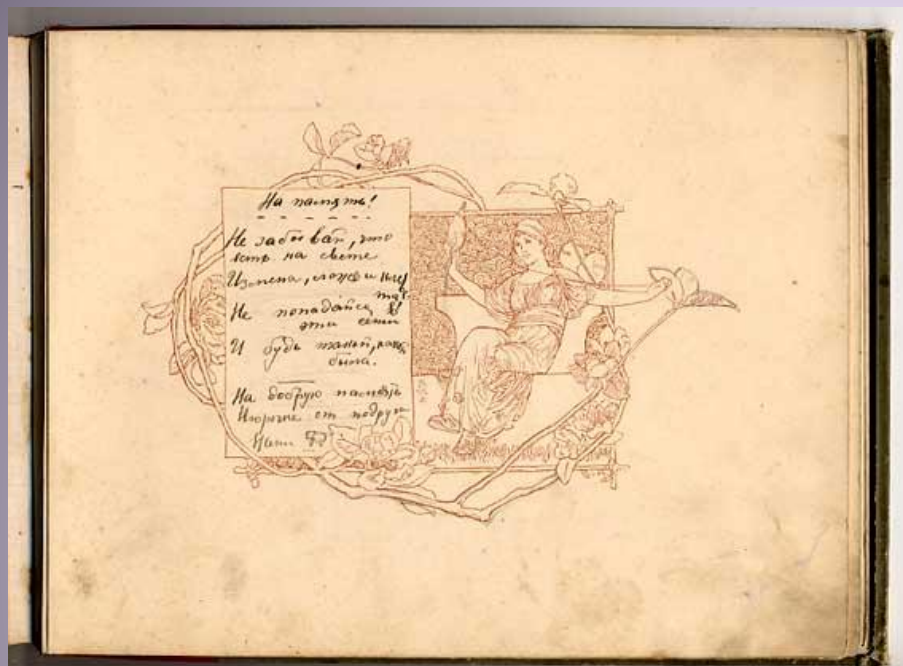 На память!
Не забывай, что
есть на свете
Измена, ложь и клеве
та.
Не попадайся в
эти сети
И будь такой, как
была.
На добрую память
Ирочке от подруги